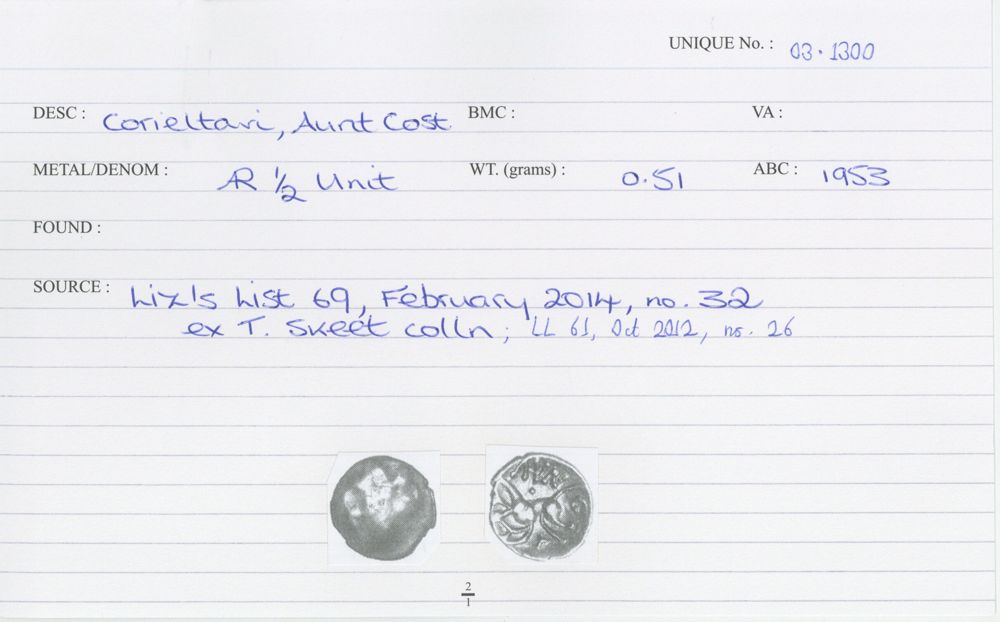 UNIQUE No. : 03·1300
DESC : Corieltavi, Aunt Cost BMC : VA :
METAL/DENOM : AR ½ Unit WT. (grams) : 0.51 ABC : 1953
FOUND :
SOURCE : Liz's List 69, February 2014, no. 32
ex T. Skeet colln; LL 61, Oct 2012, no. 26
2
1